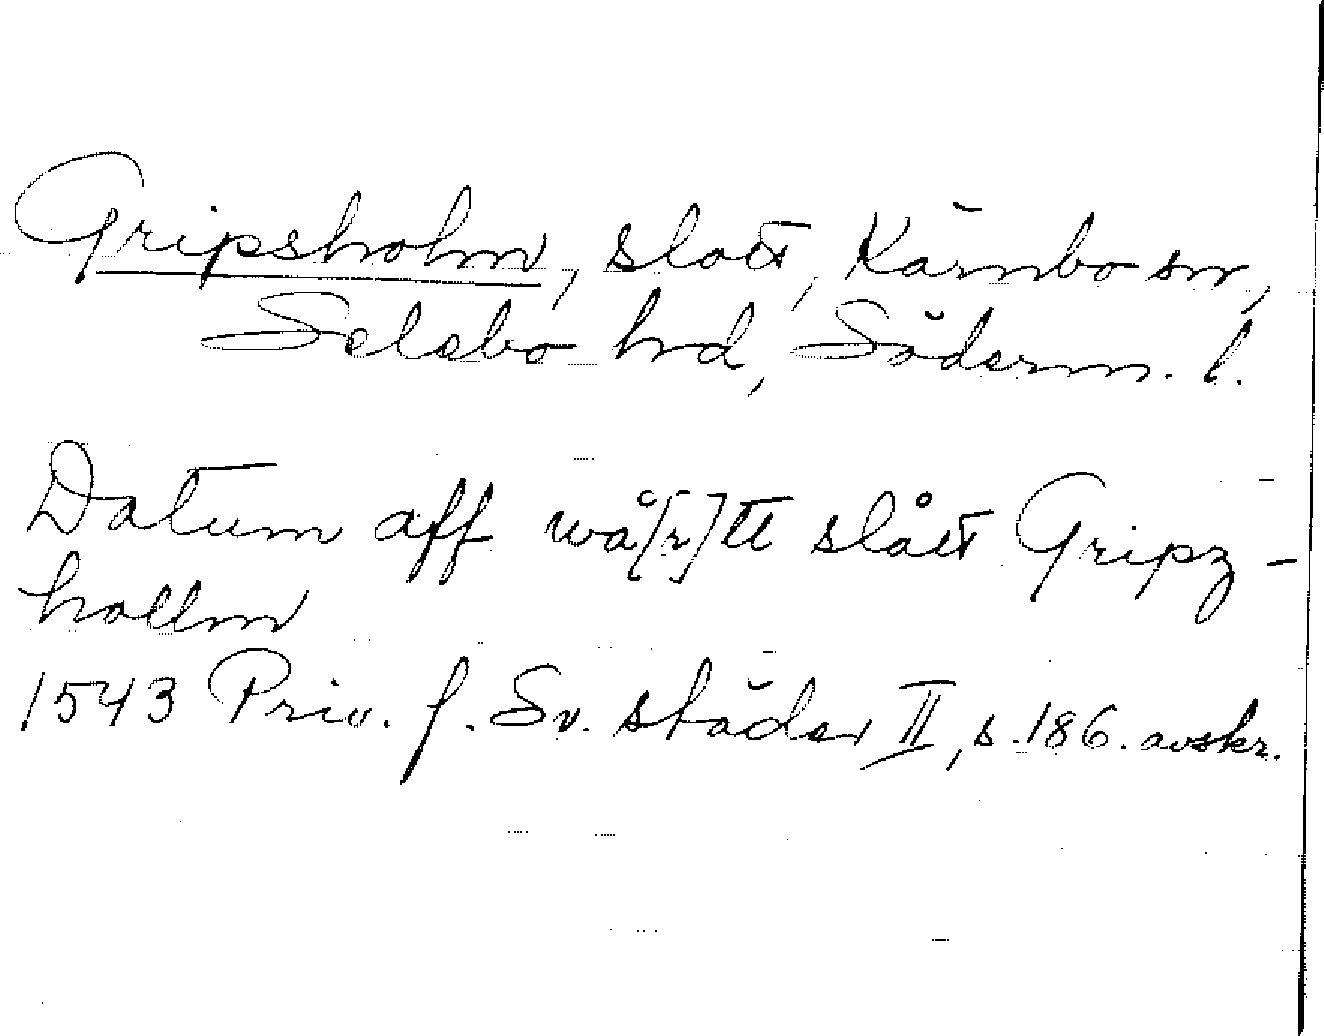 Gripsholm, slott, Kärnbo sn,
Selebo hrd, Söderm. l.
Datum aff wå[r]tt slått Gripz-
hollm
1543 Priv. f. Sv. städer II, s. 186. avskr.